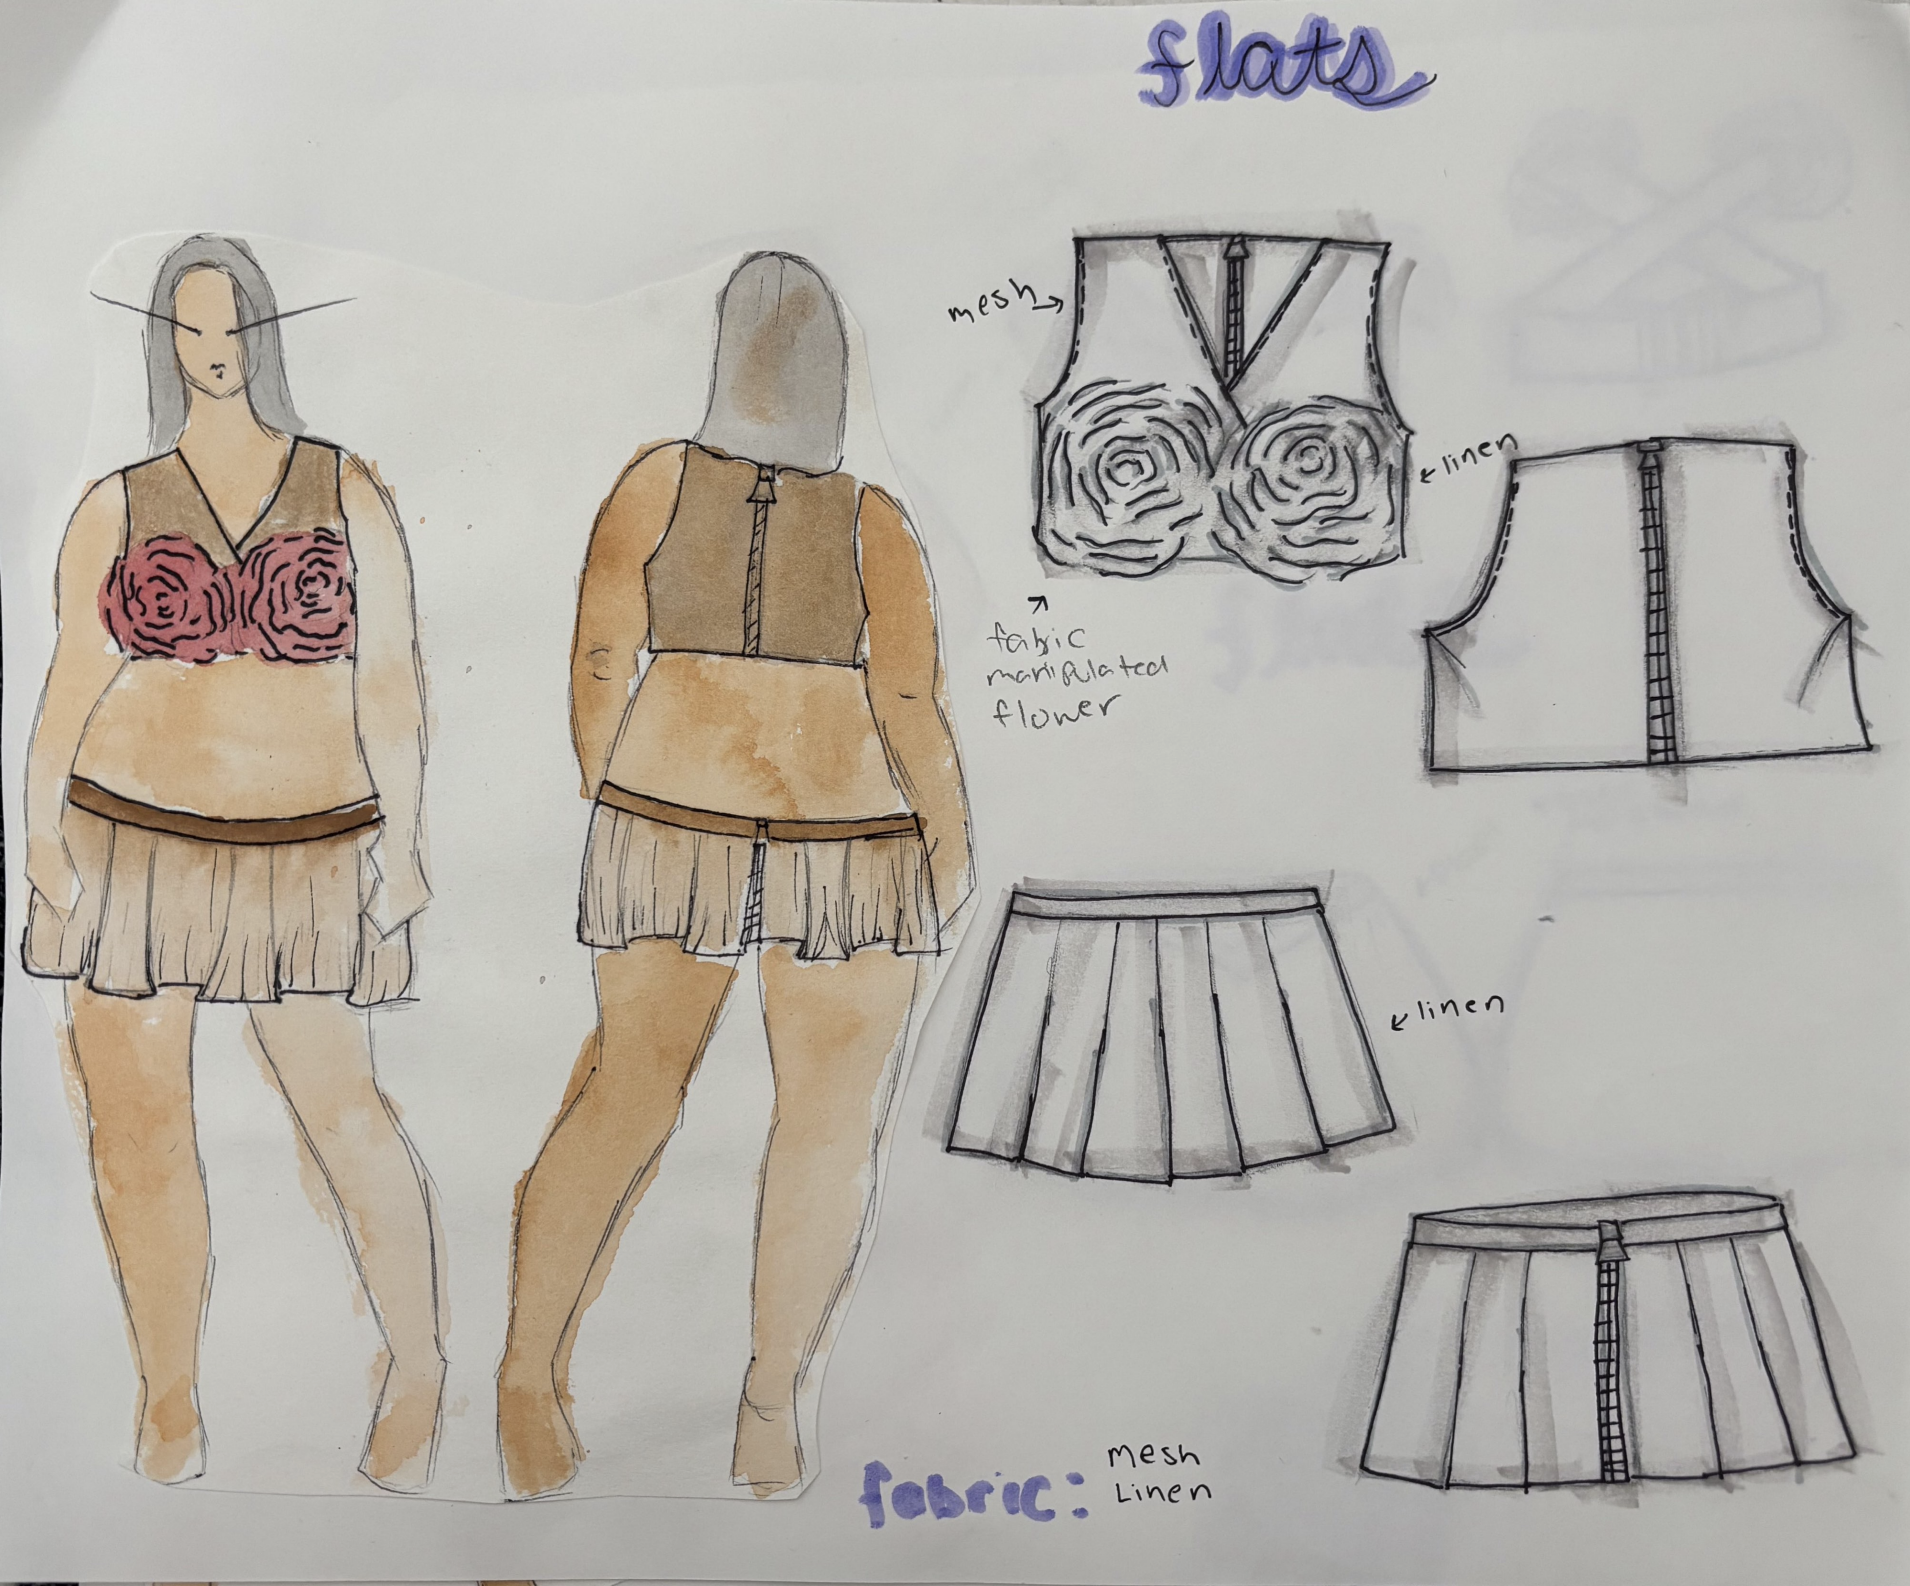 flats
mesh
linen
fabric
manipulated
flower
linen
fabric:
mesh
Linen